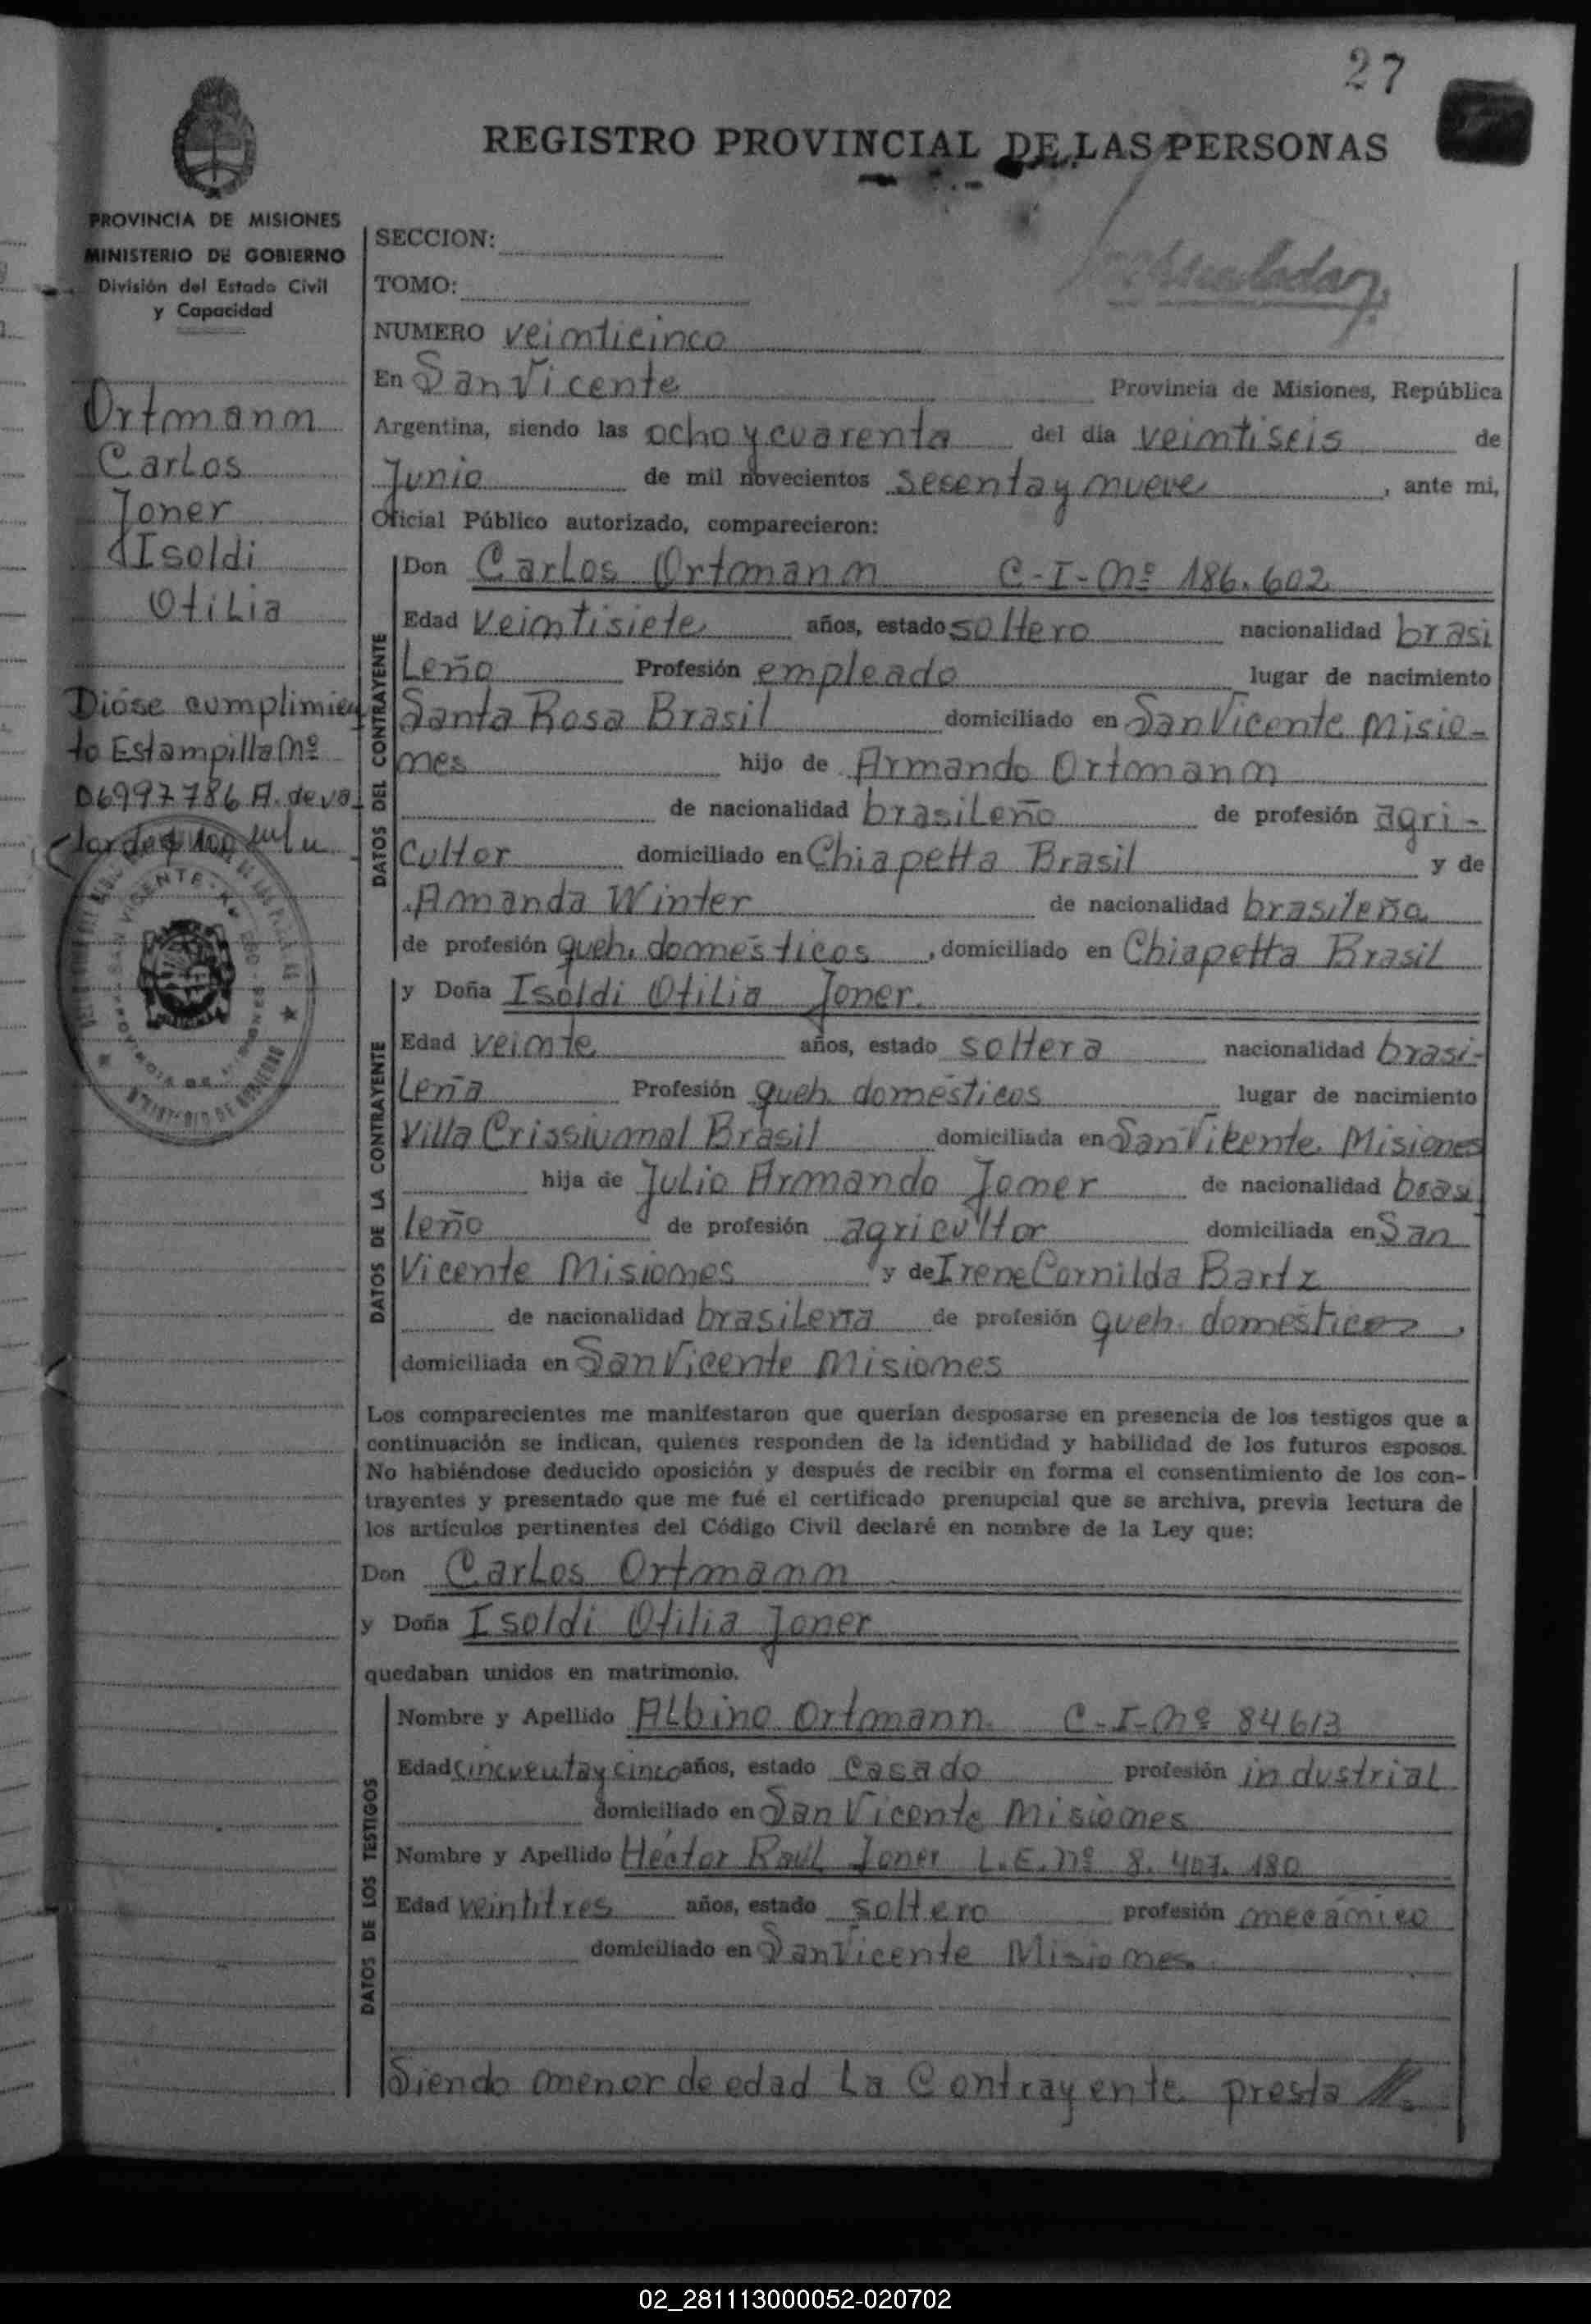 27
REGISTRO PROVINCIAL DE LAS PERSONAS
PROVINCIA DE MISIONES
MINISTERIO DE GOBIERNO
División del Estado Civil
y Capacidad
Ortmann
Carlos
Joner
Isoldi
Otilia
Dióse cumplimien
to Estampilla Nº
06997786 A. de va
SECCION:
TOMO:
NUMERO veinticinco
En San Vicente Provincia de Misiones, República
Argentina, siendo las ocho y cuarenta del día veintiseis de
Junio de mil novecientos sesenta y nueve, ante mi,
Oficial Público autorizado, comparecieron:
DATOS DEL CONTRAYENTE
Don Carlos Ortmann C-I-Nº 186.602
Edad veintisiete años, estado soltero nacionalidad brasi
Leño Profesión empleado lugar de nacimiento
Santa Rosa Brasil domiciliado en San Vicente Misio-
nes hijo de Armando Ortmann
de nacionalidad brasileño de profesión agri-
cultor domiciliado en Chiapetta Brasil y de
Amanda Winter de nacionalidad brasileña
de profesión queh. domésticos, domiciliado en Chiapetta Brasil
DATOS DE LA CONTRAYENTE
y Doña Isoldi Otilia Joner.
Edad veinte años, estado soltera nacionalidad brasi-
Leña Profesión queh. domésticos lugar de nacimiento
Villa Crissiumal Brasil domiciliada en San Vicente. Misiones
hija de Julio Armando Joner de nacionalidad brasi
leño de profesión agricultor domiciliada en San
Vicente Misiones y de Irene Cornilda Bartz
de nacionalidad brasileña de profesión queh. domesticos,
domiciliada en San Vicente Misiones
Los comparecientes me manifestaron que querían desposarse en presencia de los testigos que a
continuación se indican, quienes responden de la identidad y habilidad de los futuros esposos.
No habiéndose deducido oposición y después de recibir en forma el consentimiento de los con-
trayentes y presentado que me fué el certificado prenupcial que se archiva, previa lectura de
los artículos pertinentes del Código Civil declaré en nombre de la Ley que:
Don Carlos Ortmann
y Doña Isoldi Otilia Joner
quedaban unidos en matrimonio.
DATOS DE LOS TESTIGOS
Nombre y Apellido Albino Ortmann. C-I-Nº 84613
Edad cincuenta y cinco años, estado casado profesión industrial
domiciliado en San Vicente Misiones
Nombre y Apellido Héctor Raúl Joner L.E. Nº 8.407.180
Edad veintitres años, estado soltero profesión mecánico
domiciliado en San Vicente Misiones.
Siendo menor de edad La Contrayente presta
02_281113000052-020702